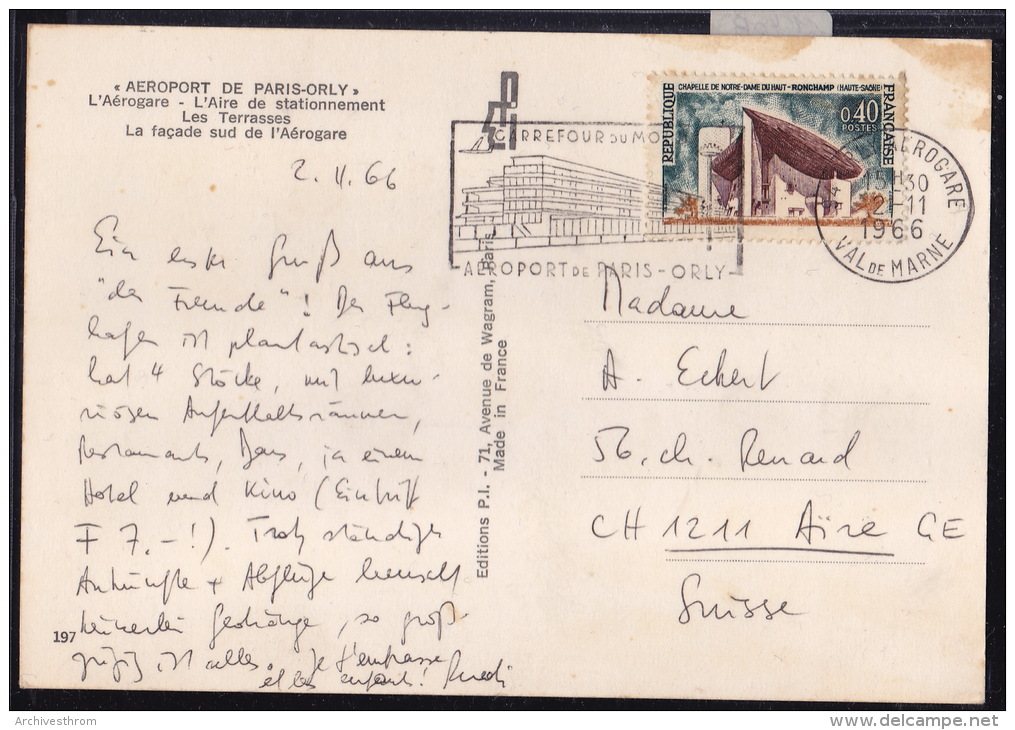 « AEROPORT DE PARIS-ORLY »
L'Aérogare - L'Aire de stationnement
Les Terrasses
La façade sud de l'Aérogare
2.11.66
Ein erster Gruß aus
"der Fremde"! Der Flug-
hafen ist phantastisch:
hat 4 Stöcke, mit luxu-
riösen Aufenthaltsräumen,
Restaurants, Bars, ja einem
Hotel und Kino (Eintritt
F 7.-!). Trotz ständiger
Ankünfte + Abflüge herrscht
keinerlei Gedränge, so groß-
zügig ist alles. Je t'embrasse
et les enfants! Ruedi
197
Editions P.I. - 71, Avenue de Wagram, Paris
Made in France
CARREFOUR DU MO
AEROPORT DE PARIS-ORLY
REPUBLIQUE
CHAPELLE DE NOTRE-DAME DU HAUT - RONCHAMP (HAUTE-SAÔNE)
FRANÇAISE
0,40
POSTES
AEROGARE
15H30
2-11
1966
VAL DE MARNE
Madame
A. Eckert
56, ch. Renard
CH 1211 Aïre GE
Suisse
Archivesthrom
delcampe.net